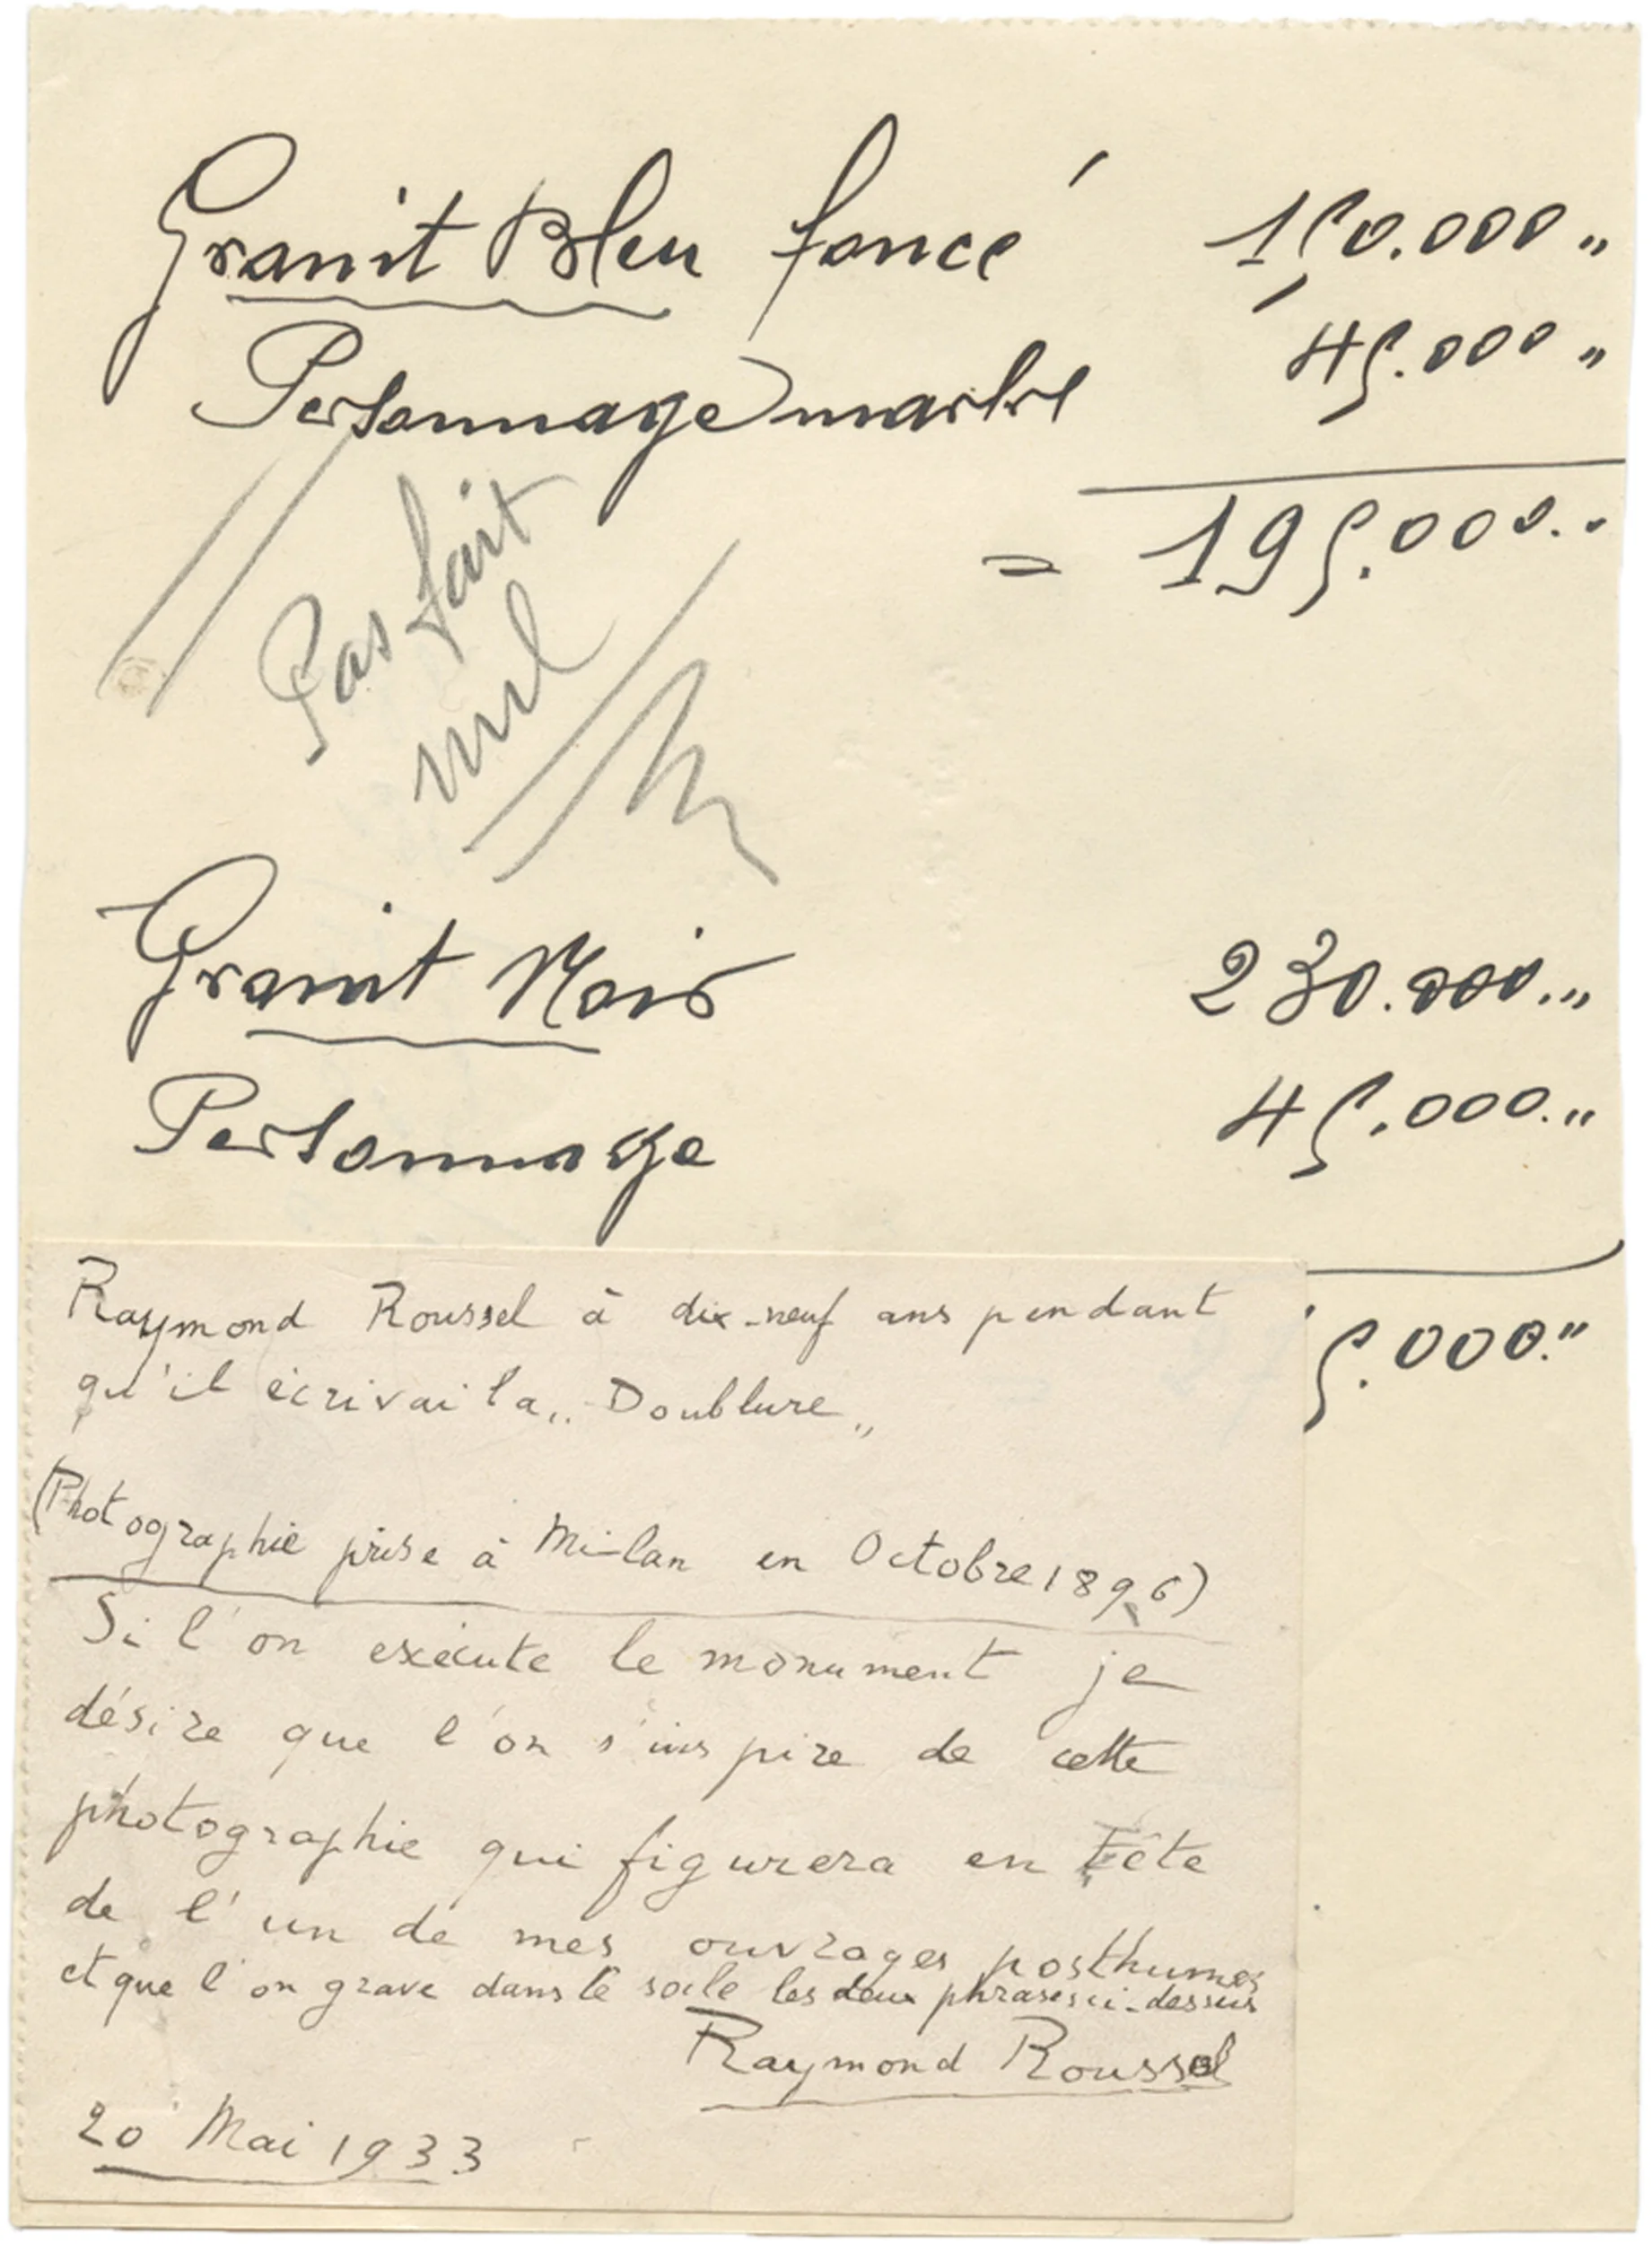 Granit Bleu foncé 150.000 "
Personnage marbre 45.000 "
= 195.000. "
Pas fait
nul
Granit Noir 230.000. "
Personnage 45.000. "
5.000. "
Raymond Roussel à dix-neuf ans pendant
qu'il écrivait la ,, Doublure ,,
(Photographie prise à Milan en Octobre 1896)
Si l'on exécute le monument je
désire que l'on s'inspire de cette
photographie qui figurera en tête
de l'un de mes ouvrages posthumes
et que l'on grave dans le socle les deux phrases ci-dessus
Raymond Roussel
20 Mai 1933